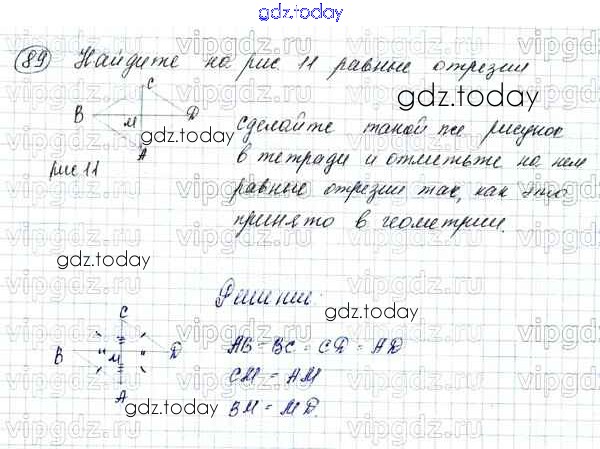 gdz.today
89 Найдите на рис 11 равные отрезки
C
B M D
A
рис 11
gdz.today
gdz.today
сделайте такой же рисунок
в тетради и отметьте на нем
равные отрезки так, как это
принято в геометрии.
gdz.today
Решение.
gdz.today
C
B M D
A
AB = BC = CD = AD
CM = AM
BM = MD.
gdz.today
gdz.today